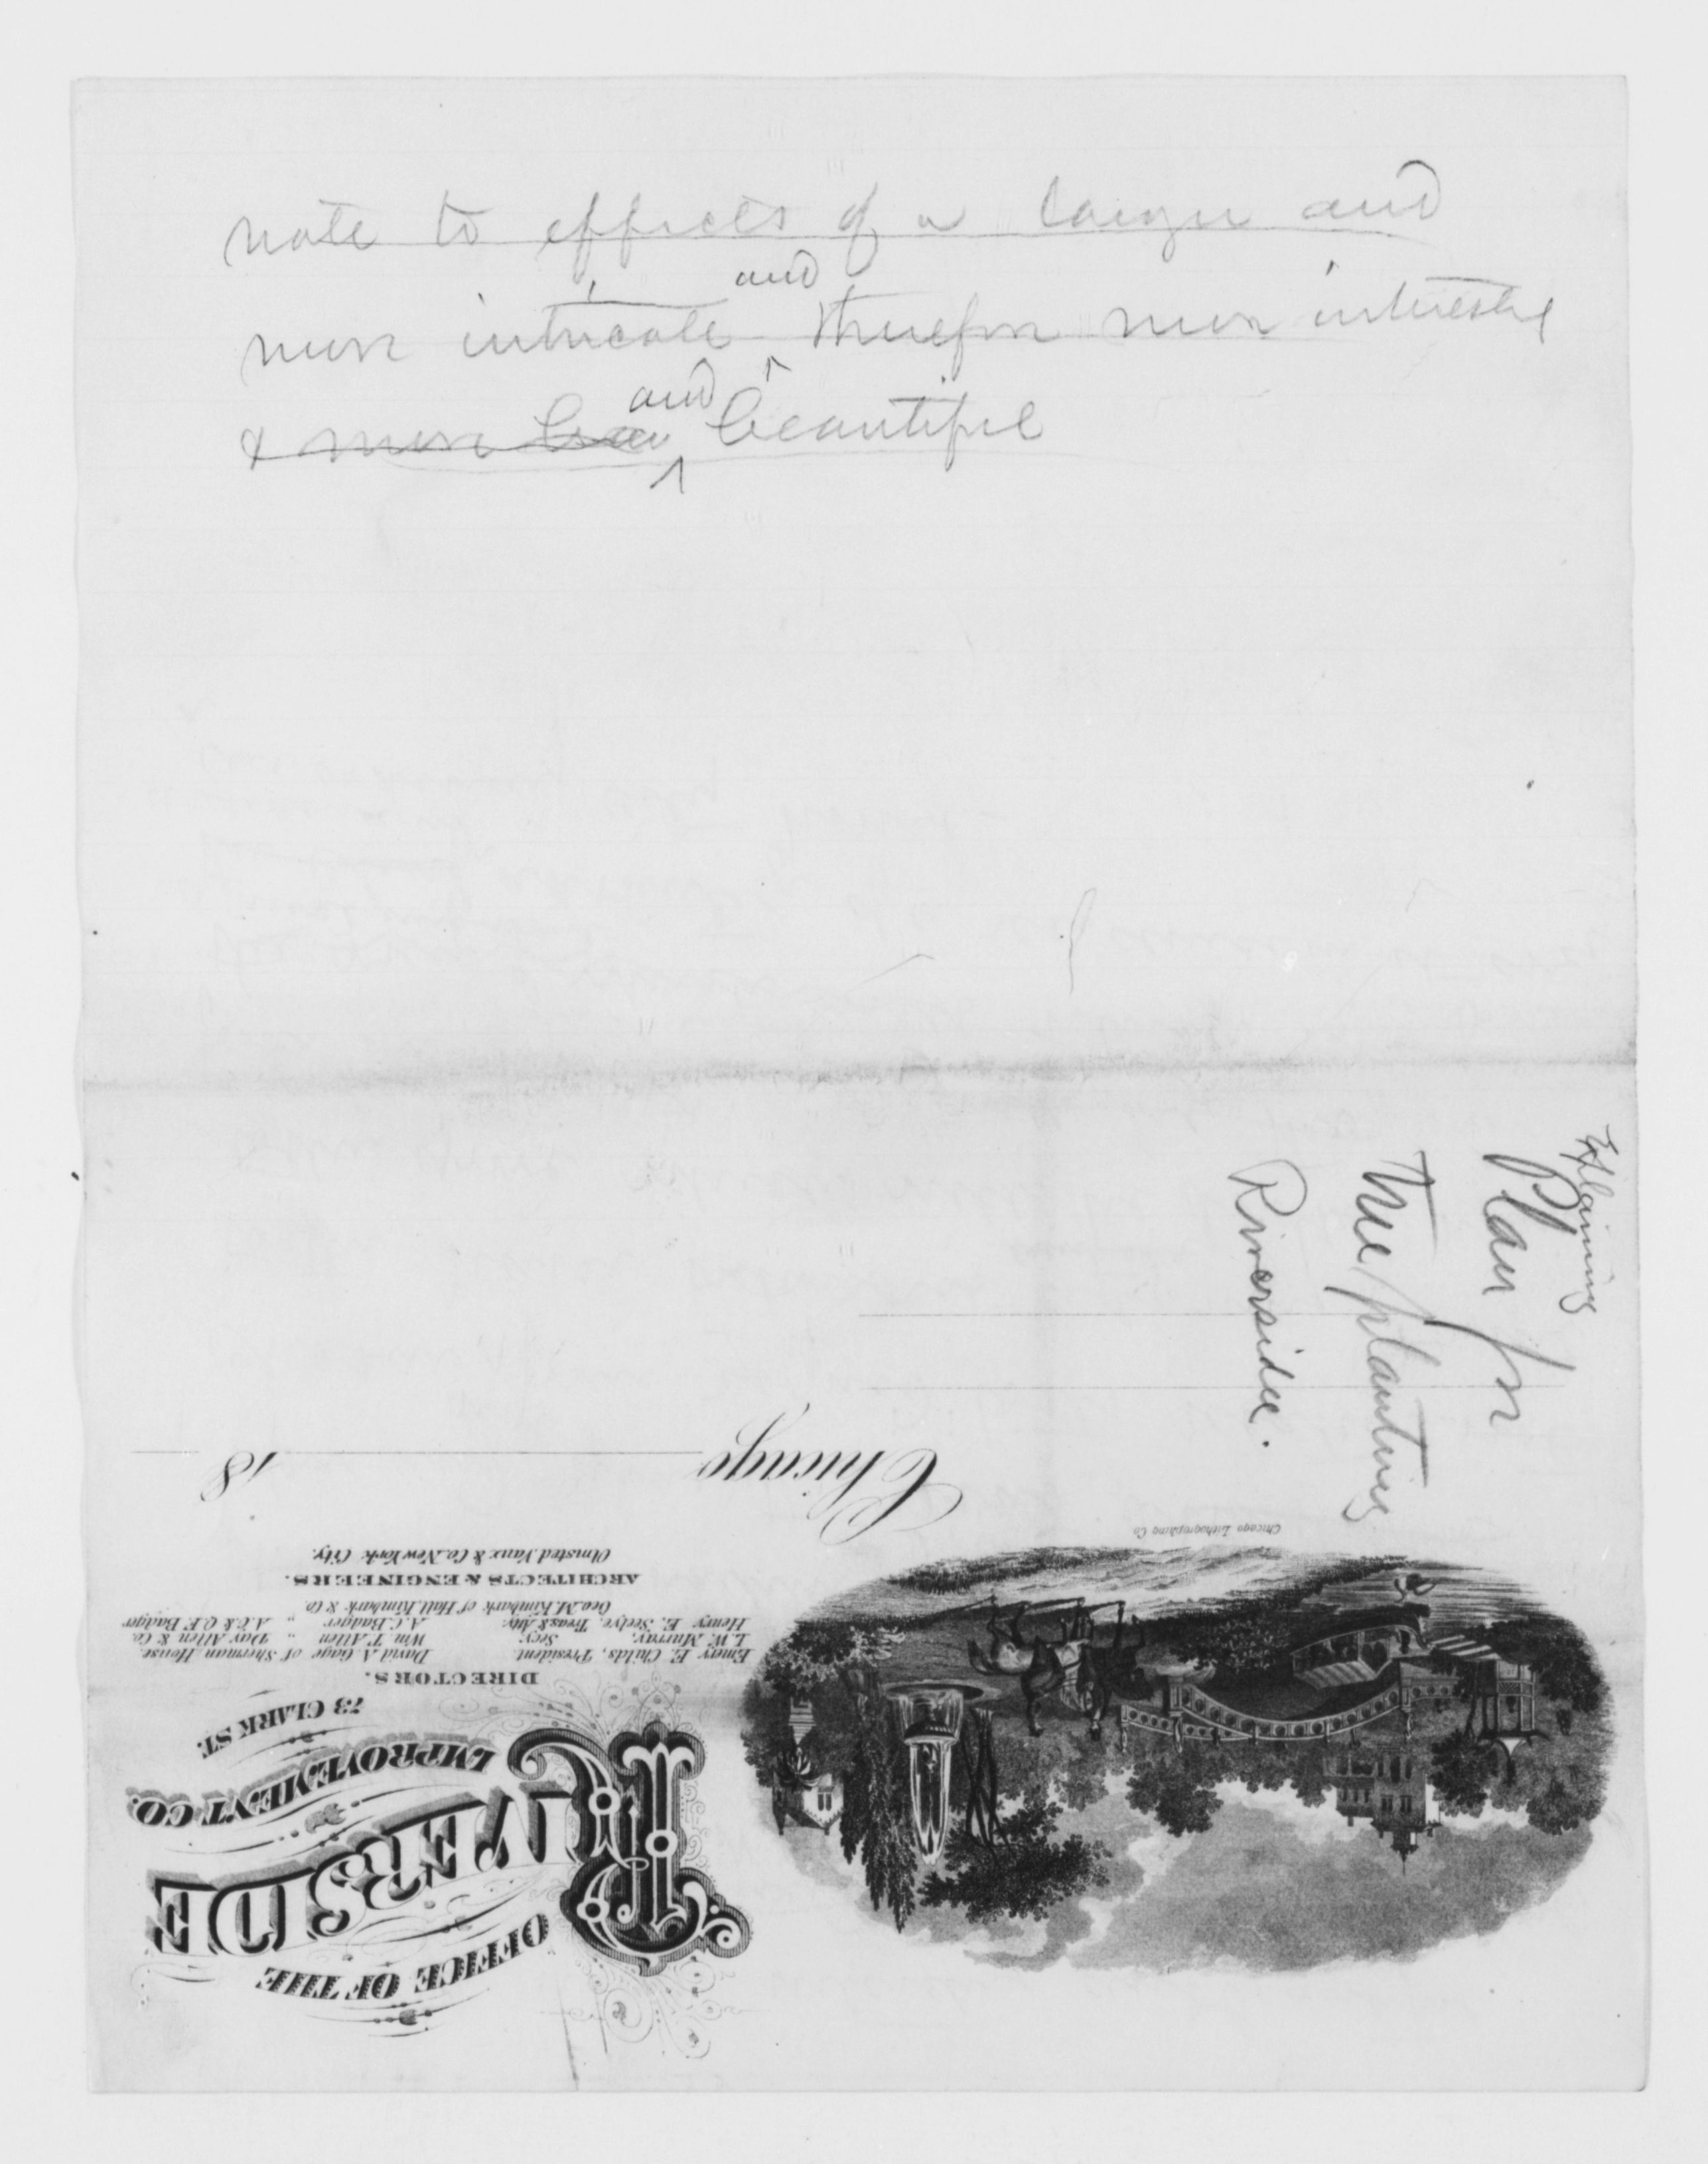 note to effects of a larger and
more intricate and therefore more interesting
& more bea and beautiful
Explaining
Plan for
tree planting
Riverside.
OFFICE OF THE
RIVERSIDE
IMPROVEMENT CO.
73 CLARK ST.
DIRECTORS.
Emery E. Childs, President. David A. Gage of Sherman House
L.W. Murray, Secy. Wm. T. Allen " Day Allen & Co.
Henry E. Seelye, Treas. & Atty. A.C. Badger " A.C. & O.F. Badger
Geo. M. Kimbark of Hall Kimbark & Co.
ARCHITECTS & ENGINEERS.
Olmsted Vaux & Co. New York City.
Chicago Lithographing Co
Chicago, 18